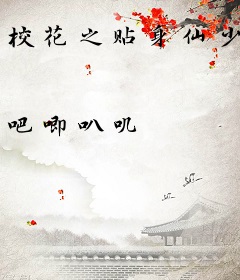 校花之贴身仙少
吧唧叭叽